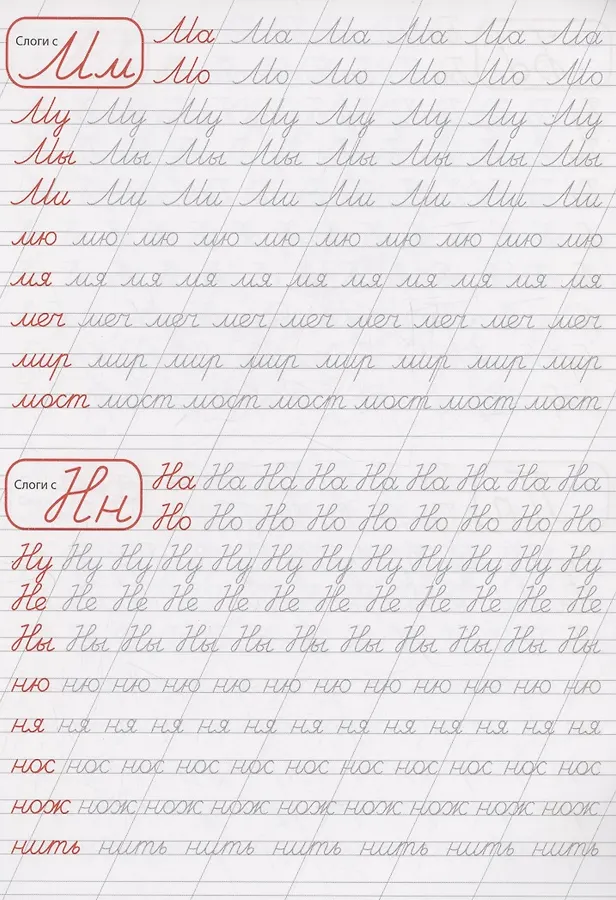 Слоги с Мм
Ма Ма Ма Ма Ма Ма Ма
Мо Мо Мо Мо Мо Мо Мо
Му Му Му Му Му Му Му Му
Мы Мы Мы Мы Мы Мы Мы Мы
Ми Ми Ми Ми Ми Ми Ми Ми
мю мю мю мю мю мю мю мю мю мю
мя мя мя мя мя мя мя мя мя мя мя
меч меч меч меч меч меч меч меч меч
мир мир мир мир мир мир мир мир
мост мост мост мост мост мост мост
Слоги с Нн
На На На На На На На На На
Но Но Но Но Но Но Но Но Но
Ну Ну Ну Ну Ну Ну Ну Ну Ну Ну Ну Ну
Не Не Не Не Не Не Не Не Не Не Не Не
Ны Ны Ны Ны Ны Ны Ны Ны Ны Ны Ны
ню ню ню ню ню ню ню ню ню ню ню ню
ня ня ня ня ня ня ня ня ня ня ня ня ня
нос нос нос нос нос нос нос нос нос нос нос
нож нож нож нож нож нож нож нож нож
нить нить нить нить нить нить нить